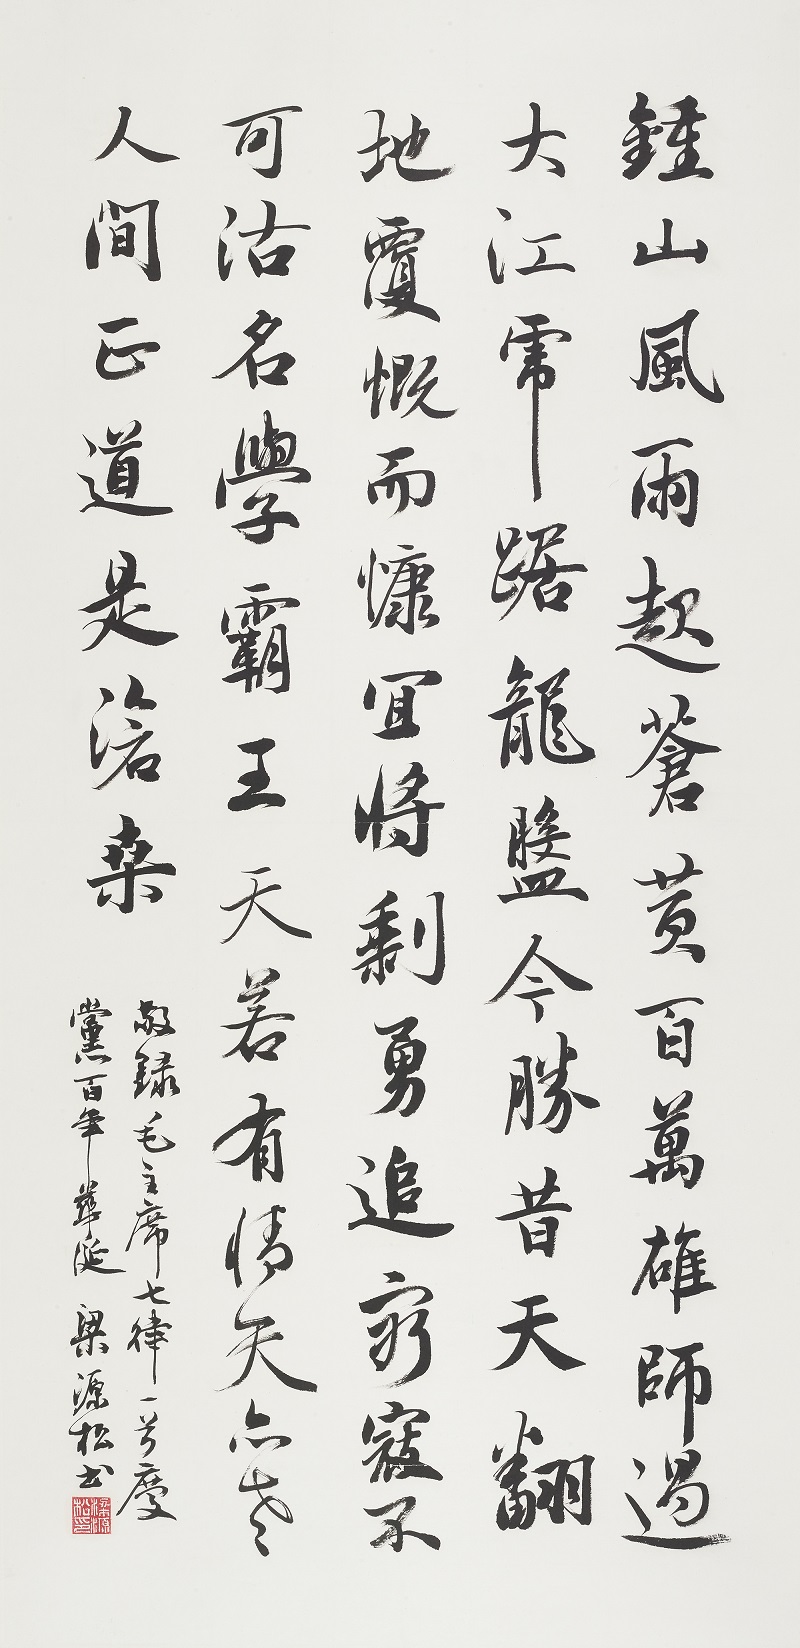 鍾山風雨起蒼黄百萬雄師過
大江虎踞龍盤今勝昔天翻
地覆慨而慷宜將剩勇追窮寇不
可沽名學霸王天若有情天亦老
人間正道是滄桑
敬録毛主席七律一首慶
黨百年華誕 梁源松书
梁源松印